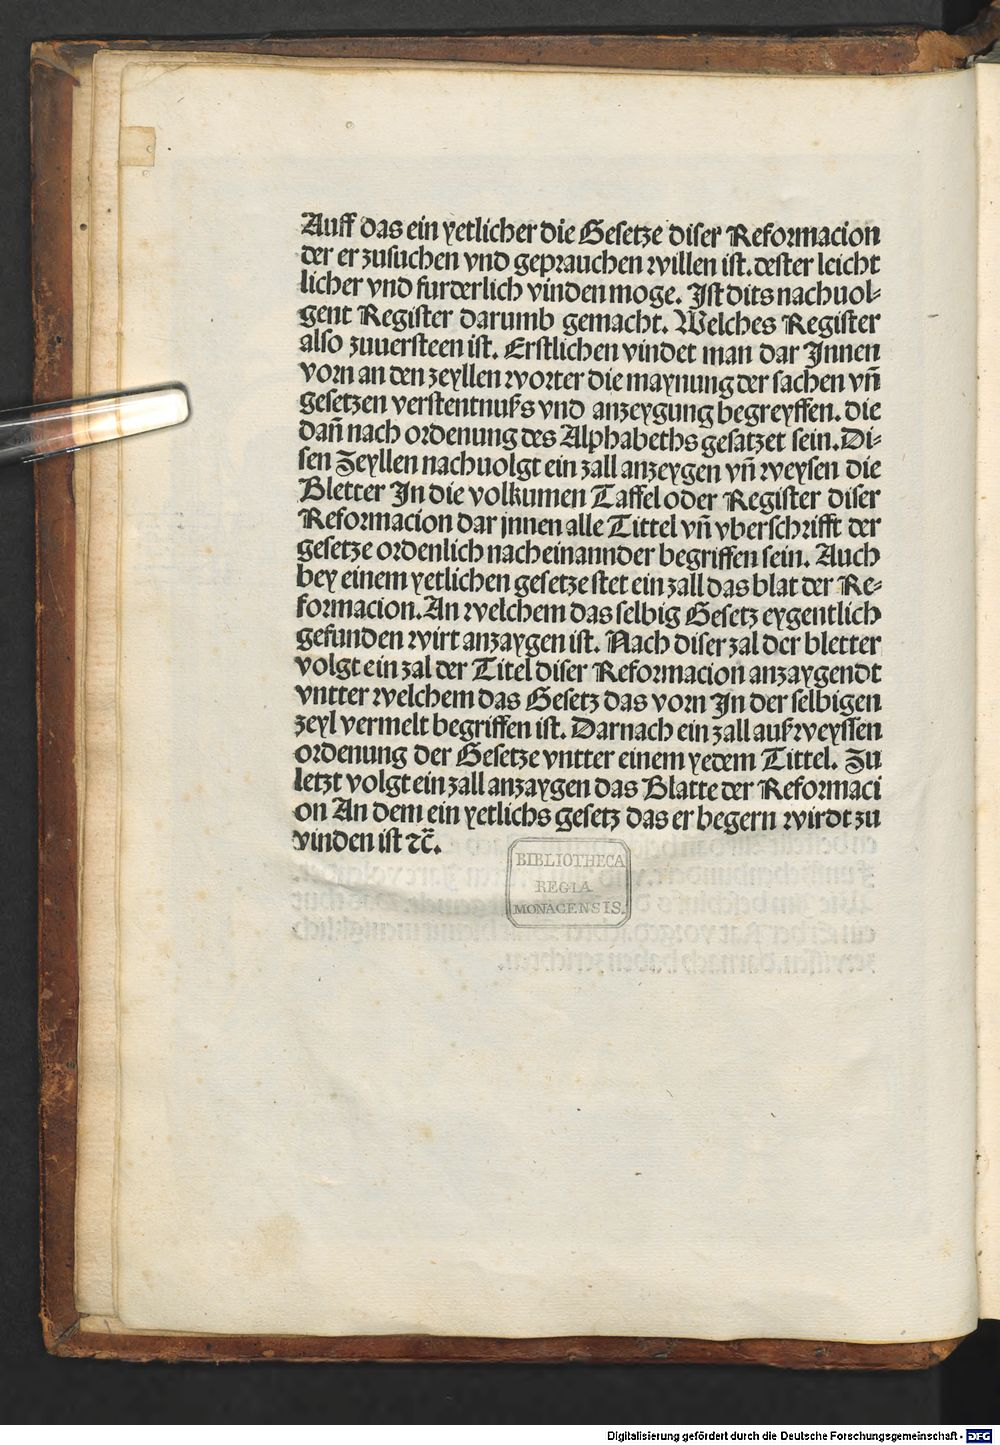 Auff das ein yetlicher die Gesetze diser Reformacion
der er zusuchen vnd geprauchen willen ist. dester leicht
licher vnd furderlich vinden moge. Ist dits nachuol-
gent Register darumb gemacht. Welches Register
also zuuersteen ist. Erstlichen vindet man dar Innen
vorn an den zeyllen worter die maynung der sachen vn̄
gesetzen verstentnuſs vnd anzeygung begreyffen. die
dan̄ nach ordenung des Alphabeths gesatzet sein. Di-
sen Zeyllen nachuolgt ein zall anzeygen vn̄ weysen die
Bletter In die volkumen Taffel oder Register diser
Reformacion dar jnnen alle Tittel vn̄ vberschrifft der
gesetze ordenlich nacheinannder begriffen sein. Auch
bey einem yetlichen gesetze stet ein zall das blat der Re-
formacion. An welchem das selbig Gesetz eygentlich
gefunden wirt anzaygen ist. Nach diser zal der bletter
volgt ein zal der Titel diser Reformacion anzaygendt
vntter welchem das Gesetz das vorn In der selbigen
zeyl vermelt begriffen ist. Darnach ein zall außweyssen
ordenung der Gesetze vntter einem yedem Tittel. Zu
letzt volgt ein zall anzaygen das Blatte der Reformaci
on An dem ein yetlichs gesetz das er begern wirdt zu
vinden ist ꝛc̄.
BIBLIOTHECA
REGIA
MONACENSIS.
Digitalisierung gefördert durch die Deutsche Forschungsgemeinschaft - DFG